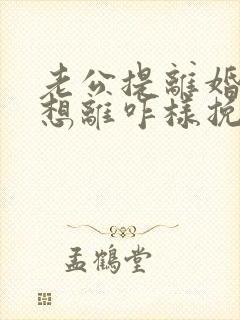 老公提離婚
想離咋樣挽
孟鶴堂